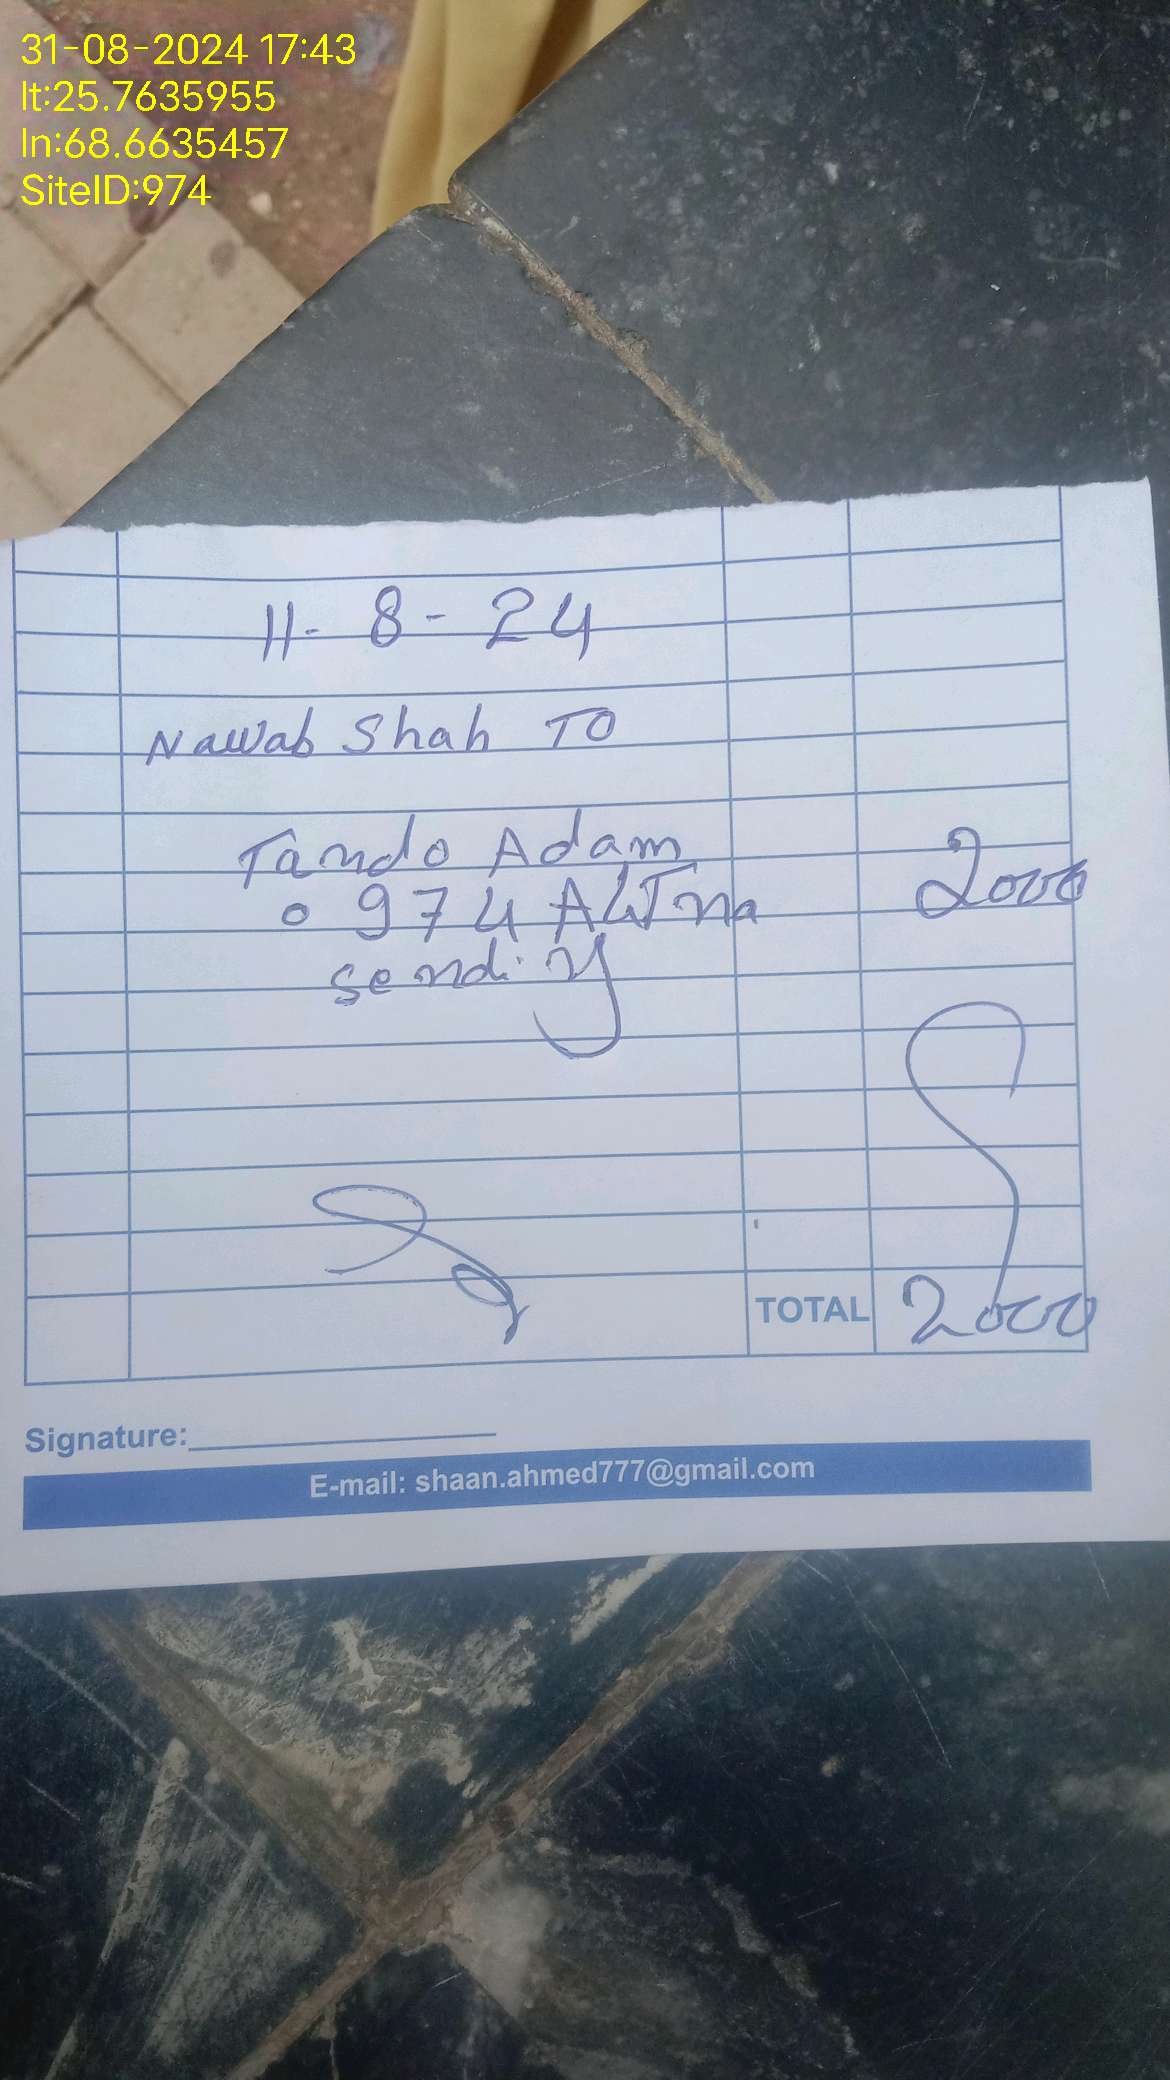 31-08-2024 17:43
lt:25.7635955
ln:68.6635457
SiteID:974
11-8-24
Nawab Shah TO
Tando Adam 2000
0974
TOTAL 2000
Signature:
E-mail: shaan.ahmed777@gmail.com